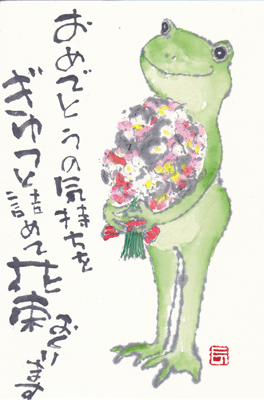 おめでとうの気持ちを
ぎゅっと詰めて花束
おくります